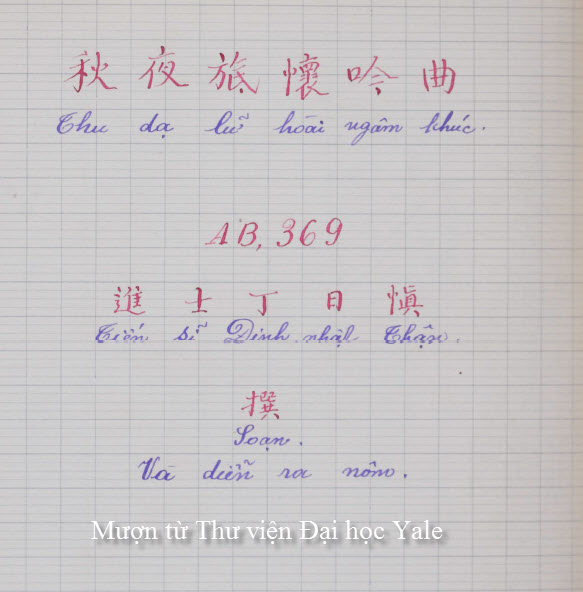 秋夜旅懷吟曲
Thu dạ lữ hoài ngâm khúc.
AB, 369
進士丁日愼
Tiến sĩ Đinh nhật Thận.
撰
Soạn.
Và diễn ra nôm.
Mượn từ Thư viện Đại học Yale